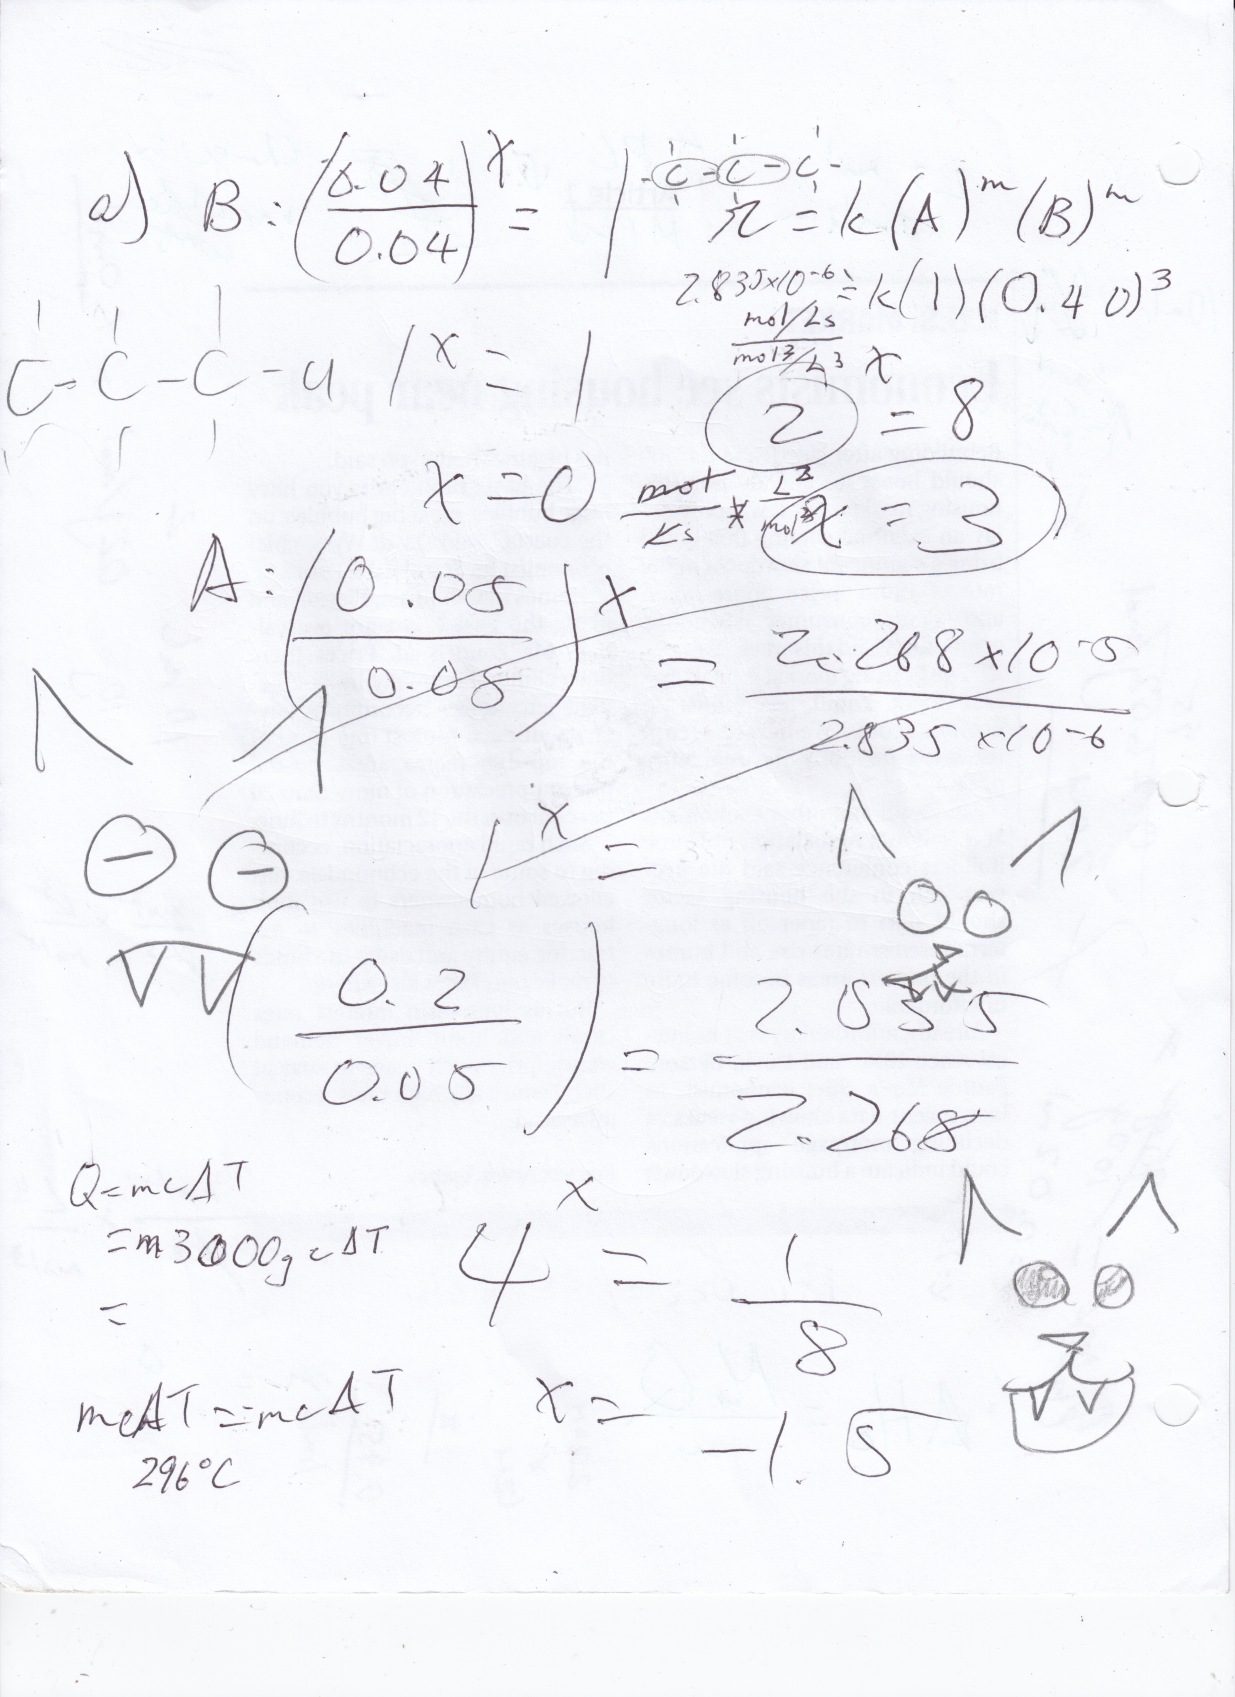 a) B: (0.04/0.04)^x = 1
-C-C-C-
r = k(A)^m (B)^m
2.835x10^-6 = k(1)(0.40)^3
mol/Ls
mol³/L³
C-C-C-4
1^x = 1
2^x = 8
x = 0
mol/Ls * L³/mol³
x = 3
A: (0.05/0.05)^x = 2.268 x10^-5/2.835 x10^-6
1^x =
(0.2/0.05) = 2.835/2.268
Q=mcΔT
=m3000g cΔT
=
4^x = 1/8
mcΔT = -mcΔT
296°C
x = -1.5